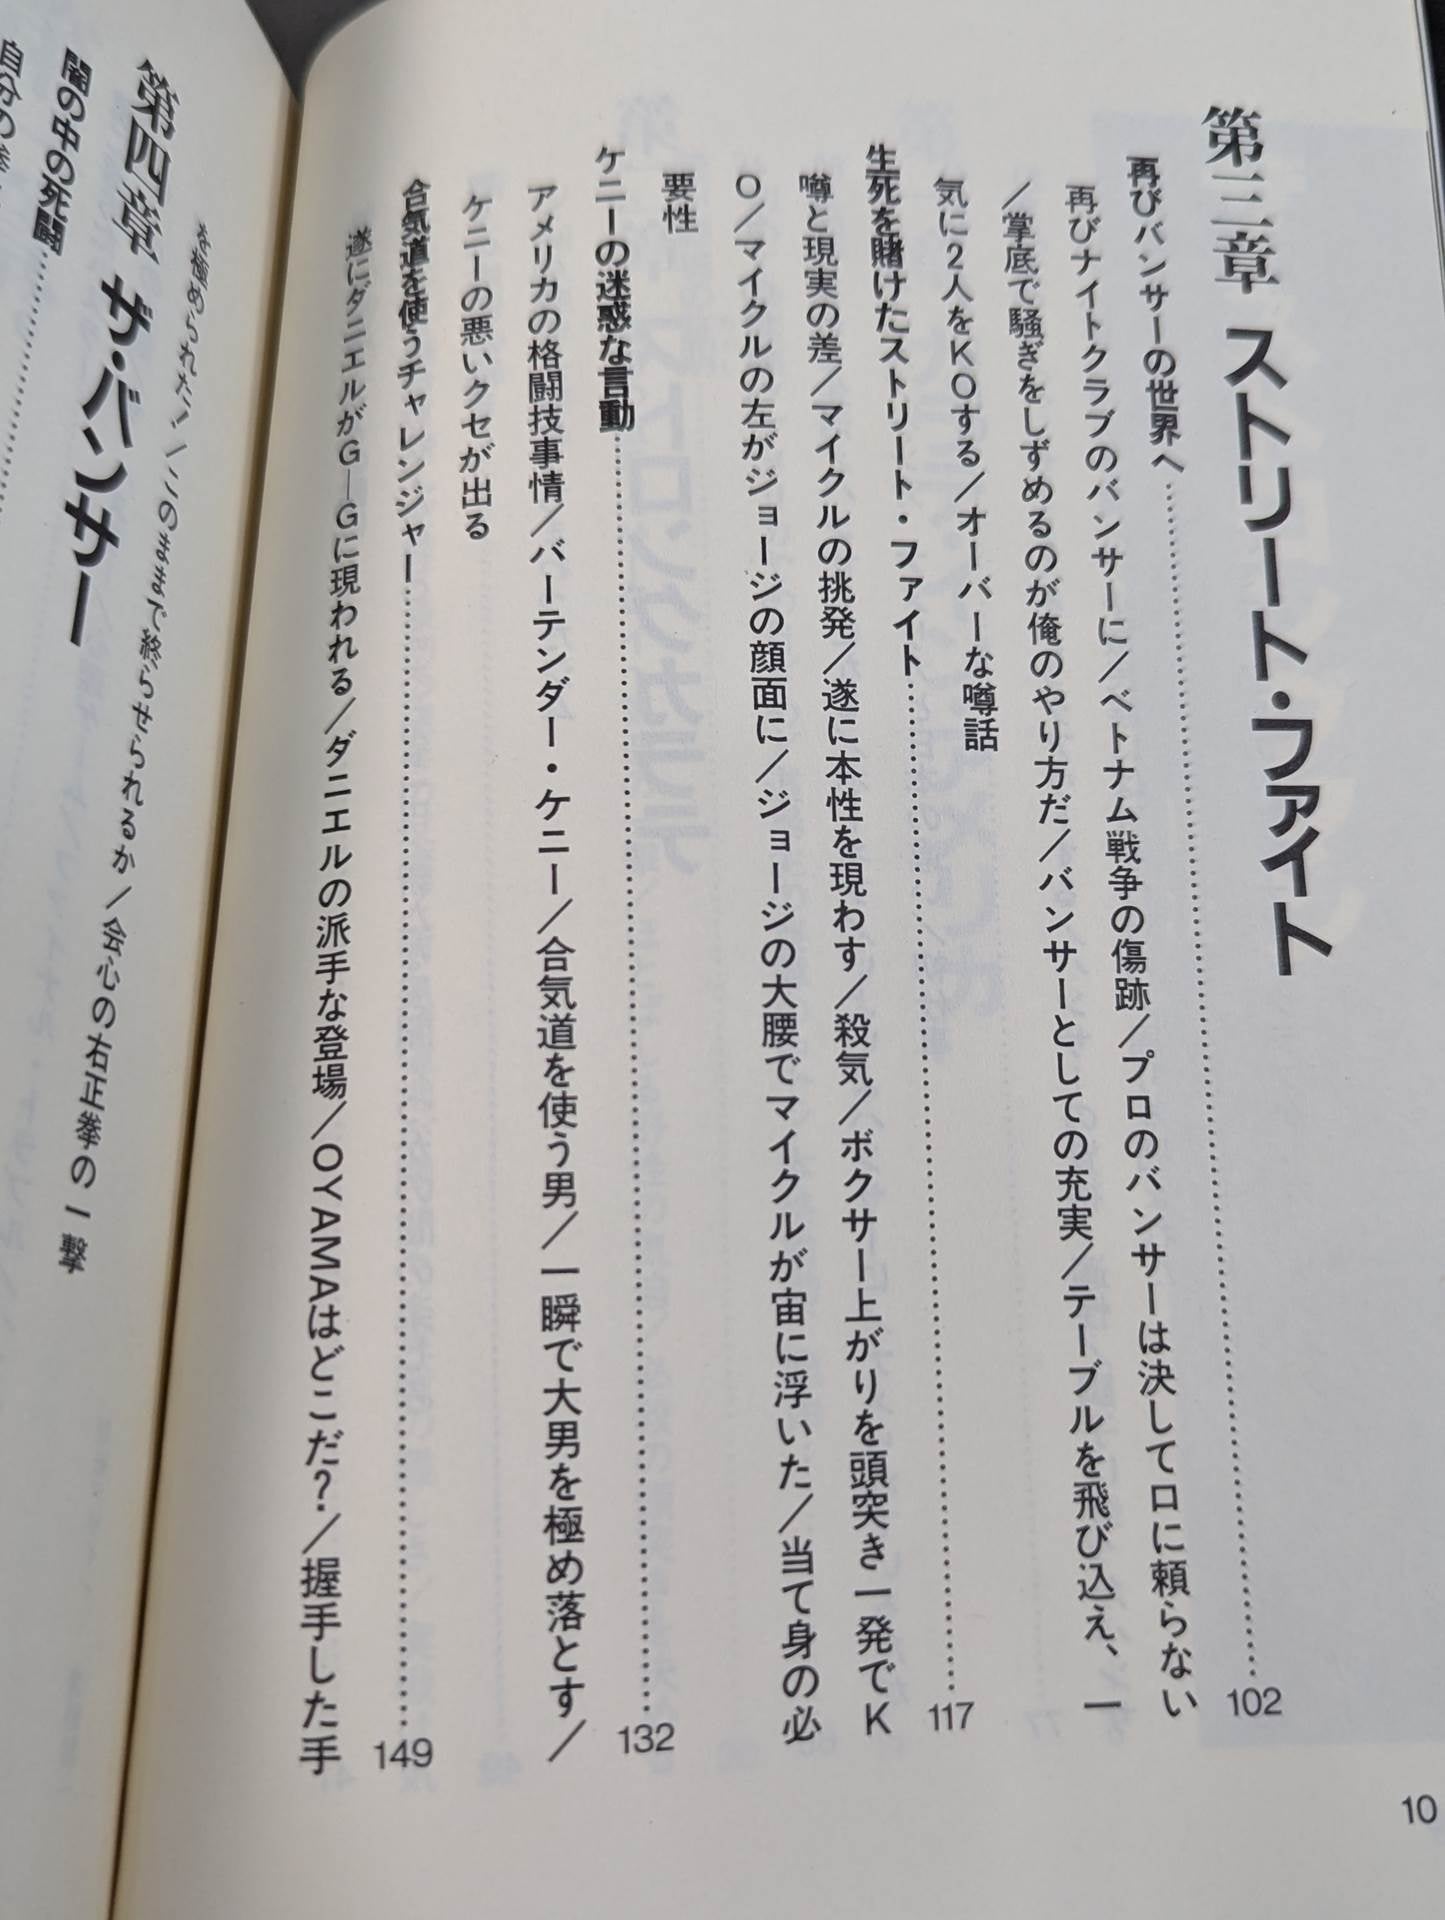 第三章 ストリート・ファイト
再びバンサーの世界へ……………………102
再びナイトクラブのバンサーに／ベトナム戦争の傷跡／プロのバンサーは決して口に頼らない
／掌底で騒ぎをしずめるのが俺のやり方だ／バンサーとしての充実／テーブルを飛び込え、一
気に2人をKOする／オーバーな噂話
生死を賭けたストリート・ファイト……………………117
噂と現実の差／マイクルの挑発／遂に本性を現わす／殺気／ボクサー上がりを頭突き一発でK
O／マイクルの左がジョージの顔面に／ジョージの大腰でマイクルが宙に浮いた／当て身の必
要性
ケニーの迷惑な言動……………………132
アメリカの格闘技事情／バーテンダー・ケニー／合気道を使う男／一瞬で大男を極め落とす／
ケニーの悪いクセが出る
合気道を使うチャレンジャー……………………149
遂にダニエルがG―Gに現われる／ダニエルの派手な登場／OYAMAはどこだ？／握手した手
10
を極められた！／このままで終らせられるか／会心の右正拳の一撃
第四章 ザ・バンサー
闇の中の死闘……………………
自分の拳